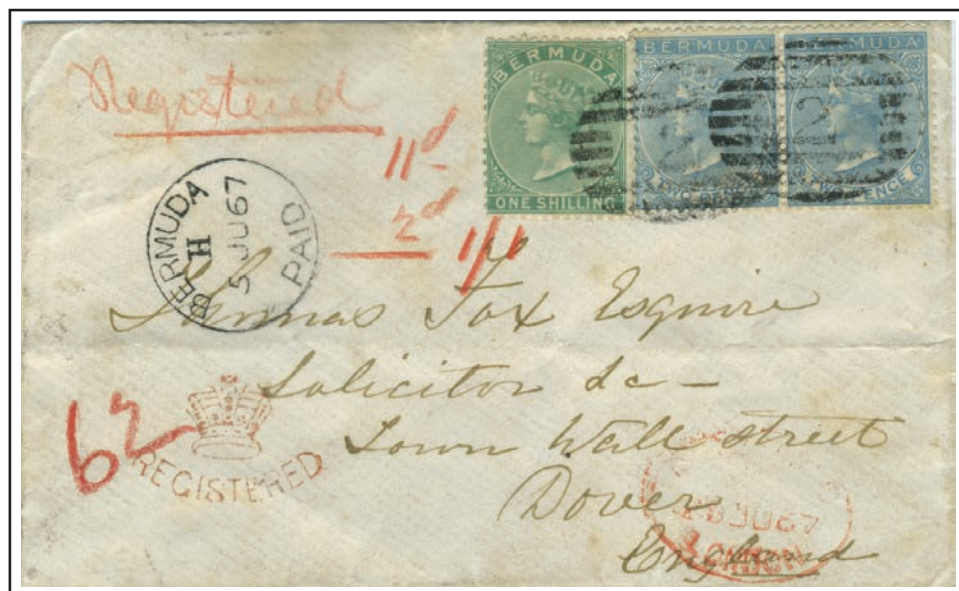 Registered
BERMUDA
ONE SHILLING
BERMUDA
BERMUDA
2
2
11d
2d
1/1
BERMUDA
H
5 JU 67
PAID
Thomas Fox Esquire
Solicitor &c -
Town Wall Street
Dover
England
62
REGISTERED
JU 67
LONDON